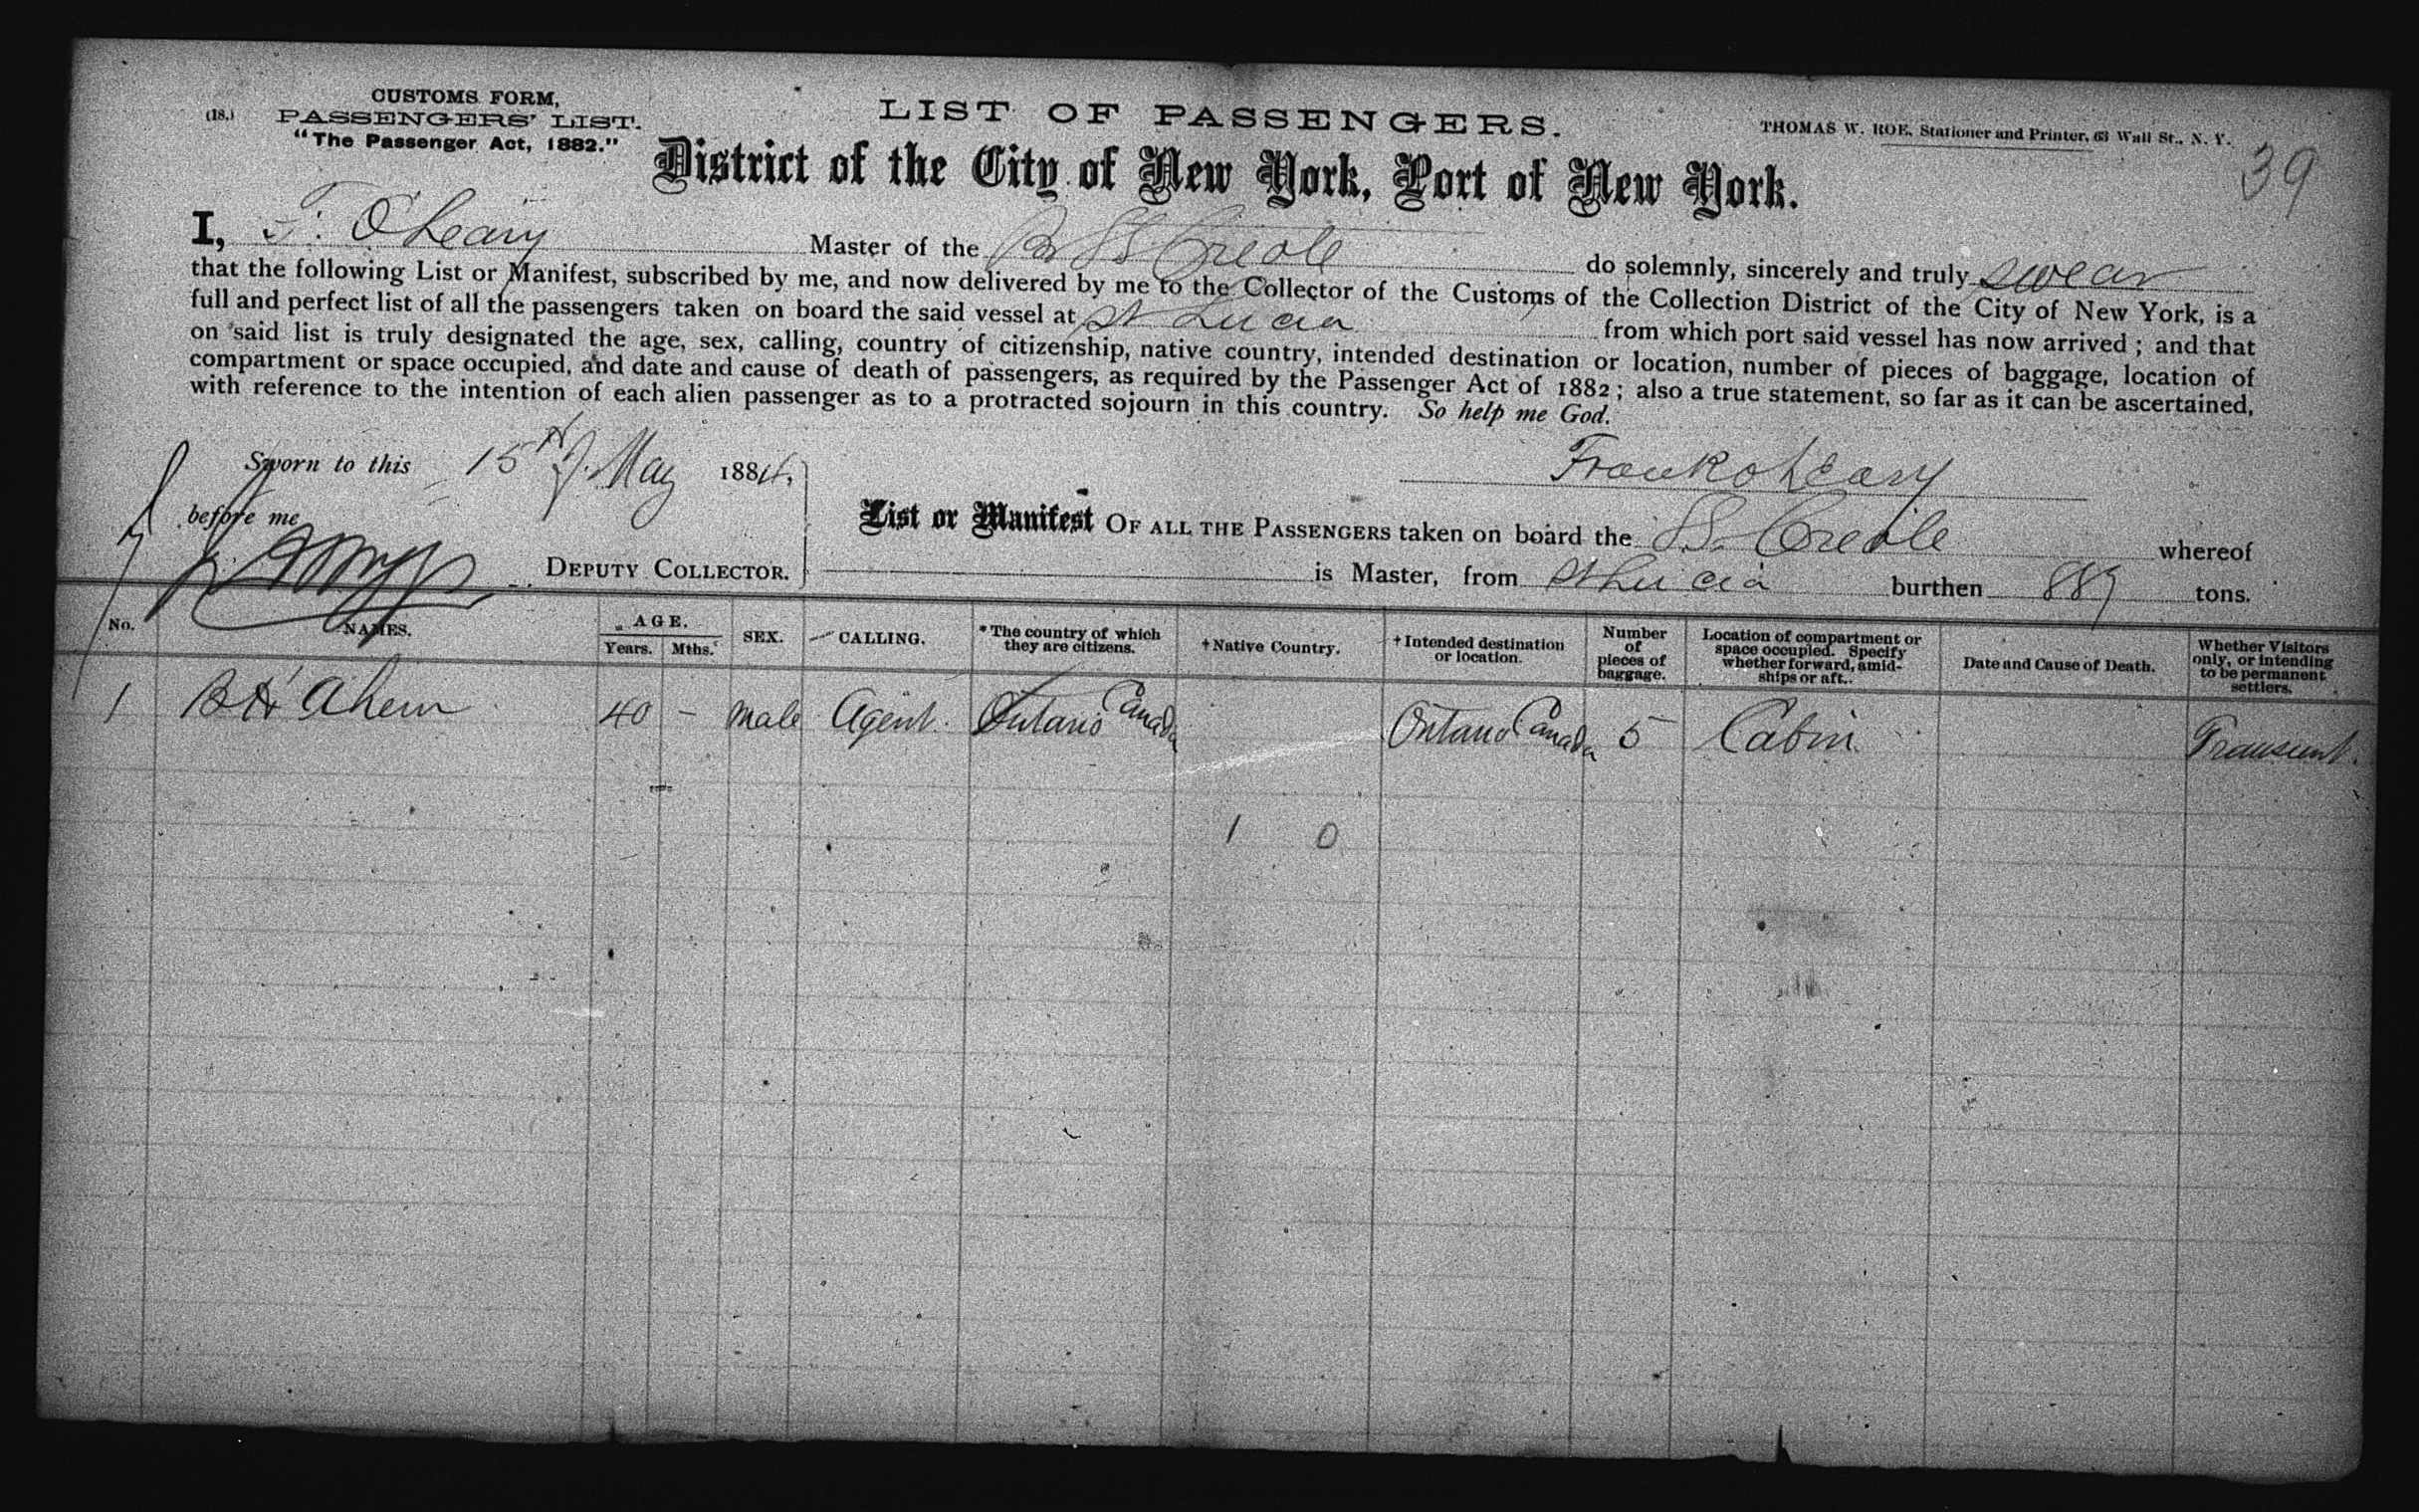 CUSTOMS FORM,
(18.) PASSENGERS' LIST.
"The Passenger Act, 1882."
LIST OF PASSENGERS.
THOMAS W. ROE, Stationer and Printer, 63 Wall St., N. Y.
39
District of the City of New York, Port of New York.
I, F. O'Leary Master of the Br SS Creole do solemnly, sincerely and truly swear
that the following List or Manifest, subscribed by me, and now delivered by me to the Collector of the Customs of the Collection District of the City of New York, is a
full and perfect list of all the passengers taken on board the said vessel at St Lucia from which port said vessel has now arrived; and that
on said list is truly designated the age, sex, calling, country of citizenship, native country, intended destination or location, number of pieces of baggage, location of
compartment or space occupied, and date and cause of death of passengers, as required by the Passenger Act of 1882; also a true statement, so far as it can be ascertained,
with reference to the intention of each alien passenger as to a protracted sojourn in this country. So help me God.
Sworn to this 15th of May 1884,
Frank O Leary
before me
DEPUTY COLLECTOR.
List or Manifest OF ALL THE PASSENGERS taken on board the SS. Creole whereof
is Master, from St Lucia burthen 889 tons.
No. NAMES. AGE. Years. Mths. SEX. CALLING. *The country of which they are citizens. †Native Country. †Intended destination or location. Number of pieces of baggage. Location of compartment or space occupied. Specify whether forward, amidships or aft. Date and Cause of Death. Whether Visitors only, or intending to be permanent settlers.
1 Ahern 40 - Male Agent. Ontario Canada Ontario Canada 5 Cabin Transient.
1 0